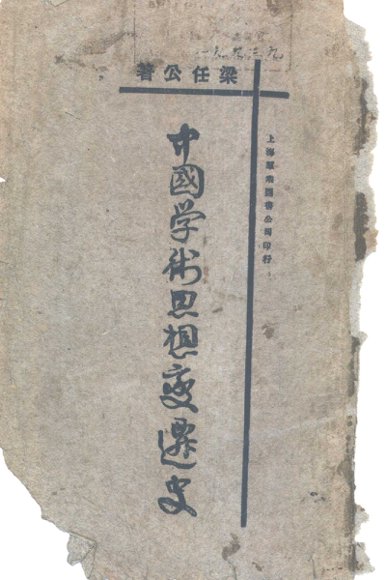 梁任公著
上海羣眾圖書公司印行
中國学術思想變遷史